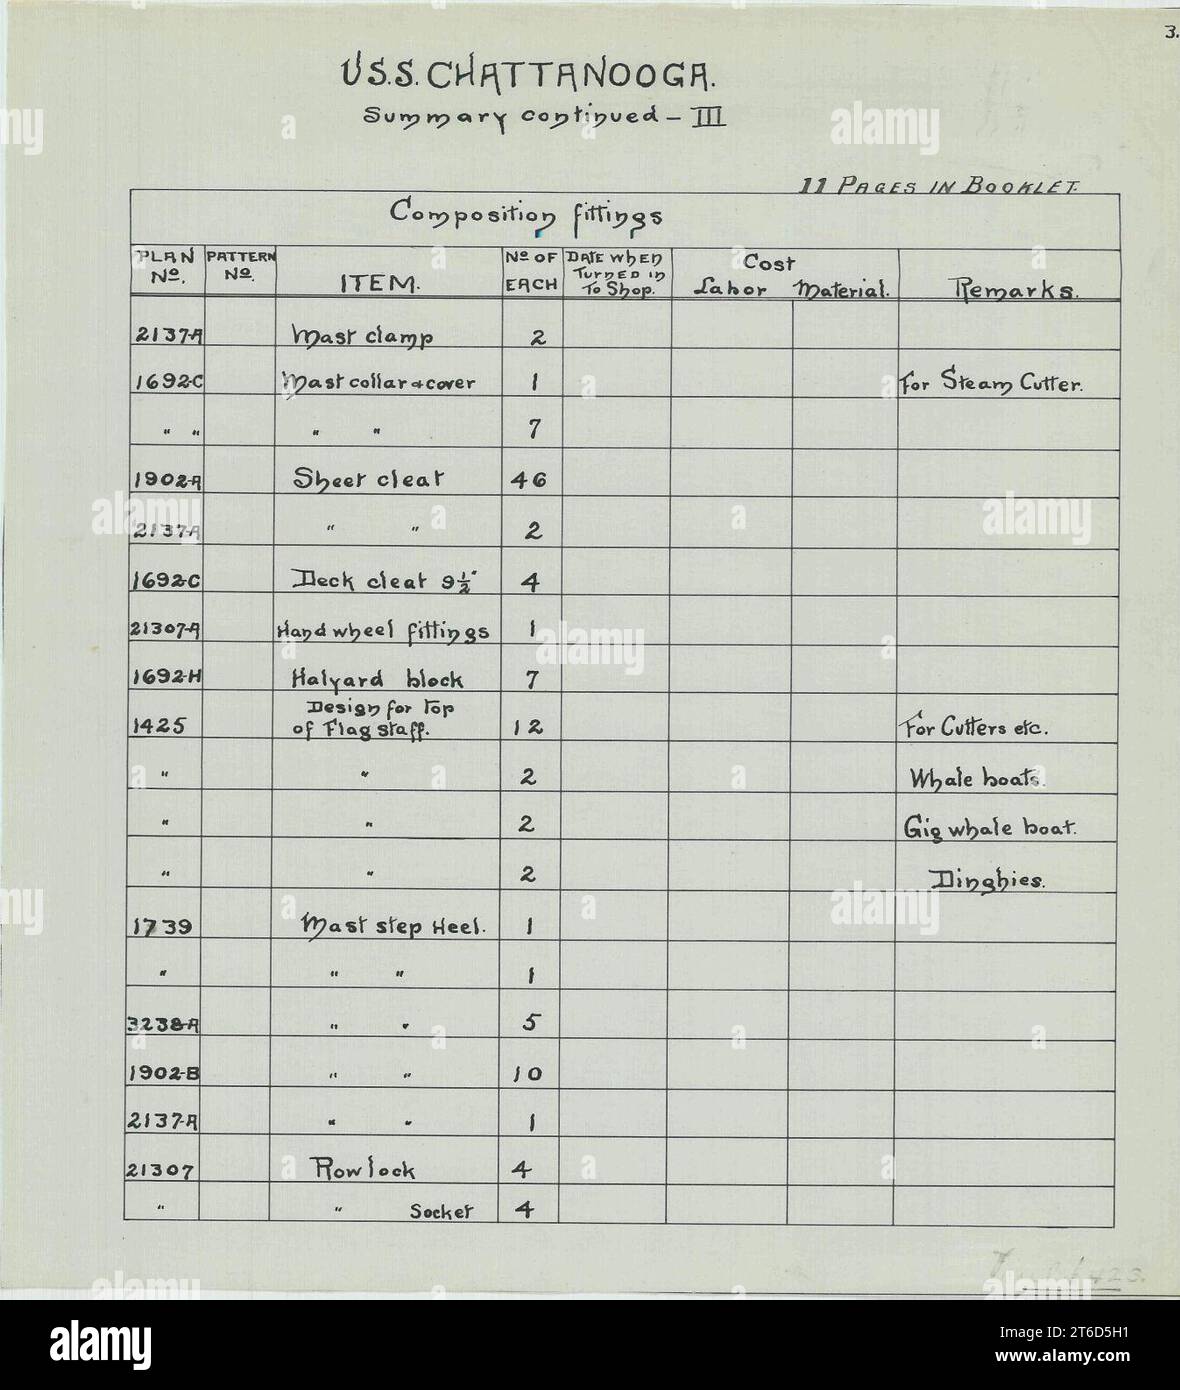 3.
U.S.S. CHATTANOOGA.
Summary continued – III
11 PAGES IN BOOKLET.
Composition fittings
PLAN No. PATTERN No. ITEM. No OF EACH DATE WHEN TURNED in To Shop. Cost Labor Material. Remarks.
2137-A Mast clamp 2
1692-C Mast collar & cover 1 For Steam Cutter.
" " " " 7
1902-A Sheet cleat 46
2137-A " " 2
1692-C Deck cleat 9½" 4
21307-A Hand wheel fittings 1
1692-H Halyard block 7
1425 Design for top of Flag staff. 12 For Cutters etc.
" " 2 Whale boats.
" " 2 Gig whale boat.
" " 2 Dinghies.
1739 Mast step Heel. 1
" " " 1
3238-A " " 5
1902-B " " 10
2137-A " " 1
21307 Row lock 4
" " Socket 4
alamy
Image ID: 2T6D5H1
www.alamy.com